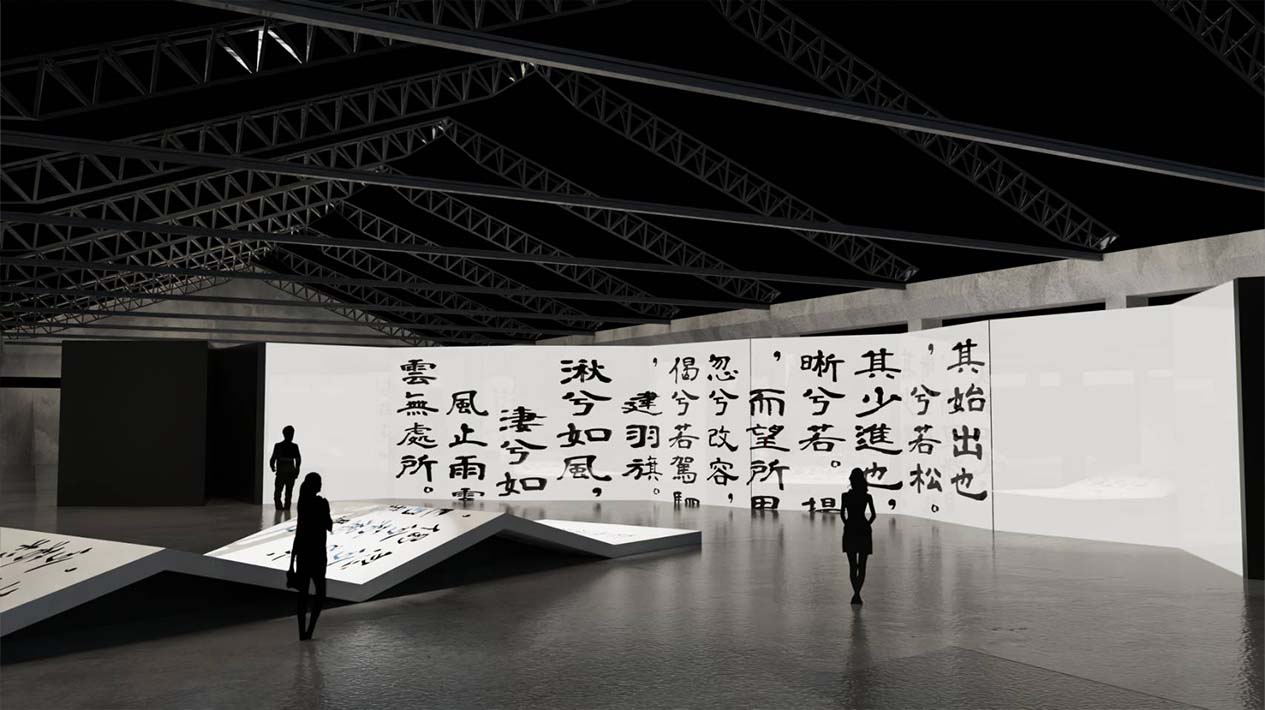 其始出也
，兮若松。
其少進也，
晰兮若。
，而望所
忽兮改容，
偈兮若駕
，建羽旗。
湫兮如風，
淒兮如
風止雨
雲無處所。